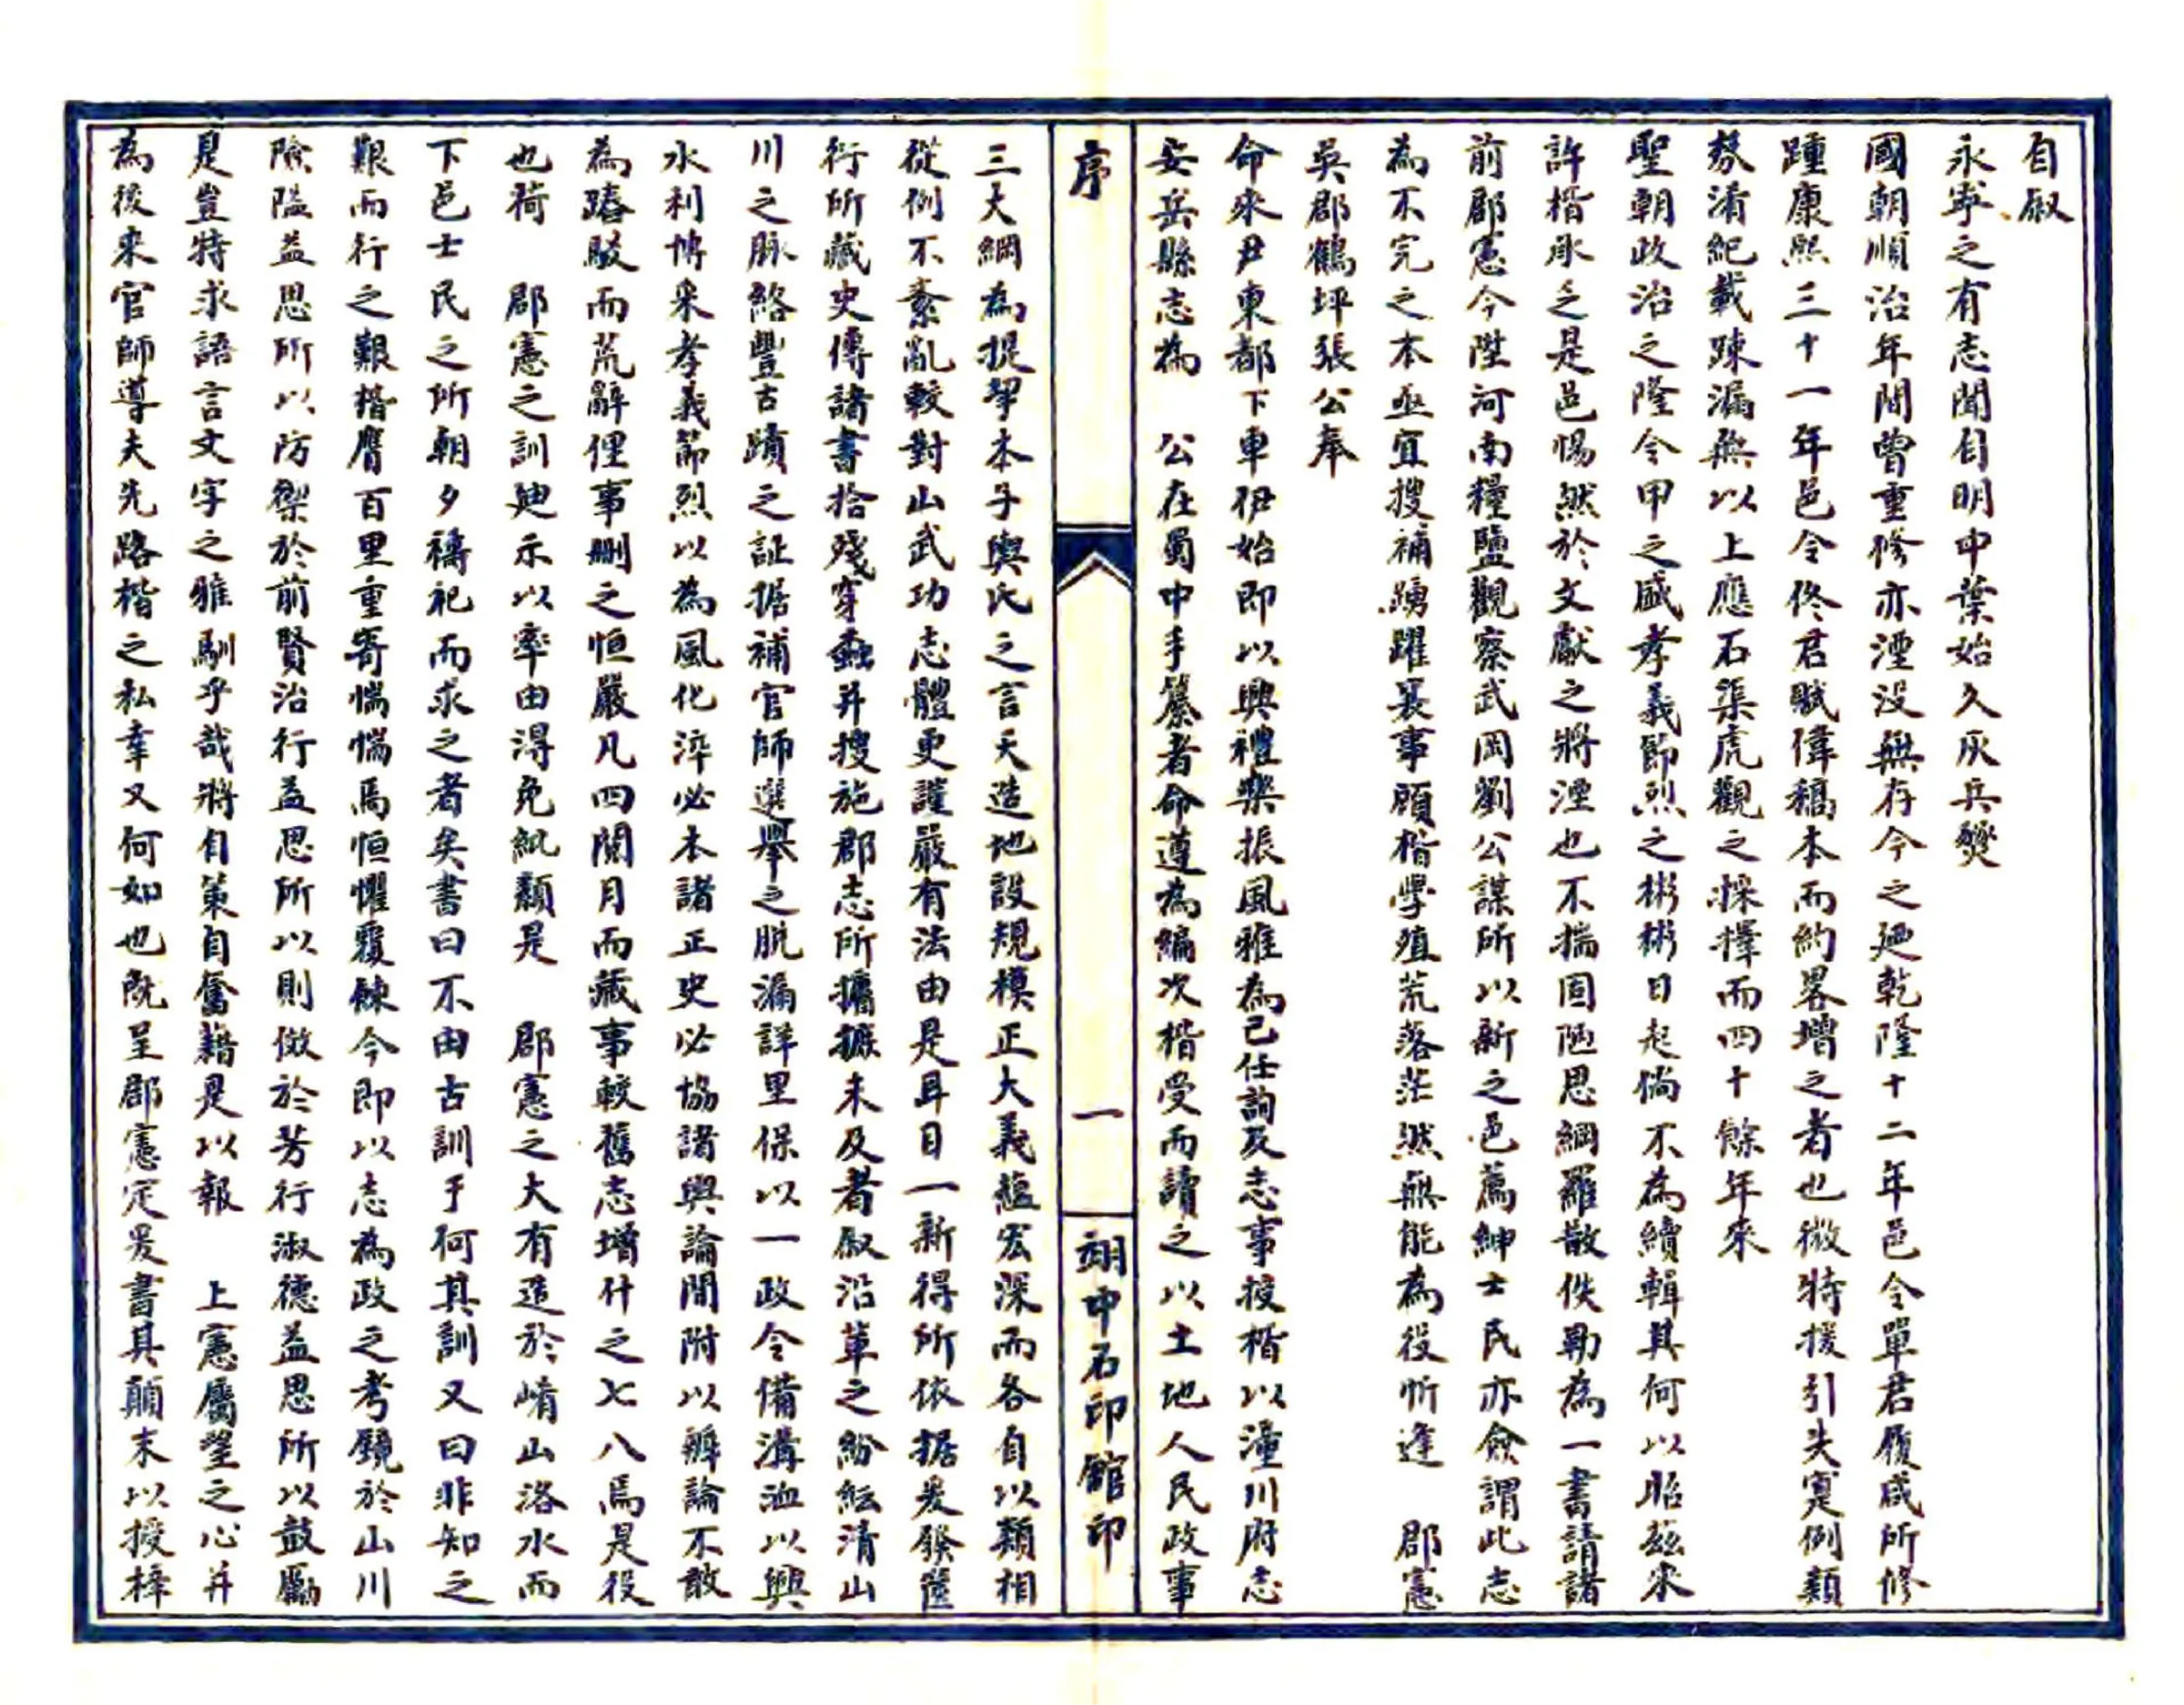 自敘
永寧之有志聞自明中葉始久灰兵燹
國朝順治年間曾重修亦湮没無存今之廼乾隆十二年邑令單君履咸所修
踵康熙三十一年邑令佟君賦偉稿本而約畧增之者也微特援引失寔例類
棼淆紀載踈漏無以上應石渠虎觀之採擇而四十餘年來
聖朝政治之隆令甲之盛孝義節烈之彬彬日起倘不為續輯其何以昭兹來
許楷承乏是邑惕然於文獻之將湮也不揣固陋思網羅散佚勒為一書請諸
前郡憲今陞河南糧鹽觀察武岡劉公謀所以新之邑薦紳士民亦僉謂此志
為不完之本亟宜搜補踴躍襄事頋楷學殖荒落茫然無能為役忻逢　郡憲
吳郡鶴坪張公奉
命來尹東都下車伊始即以興禮樂振風雅為己任詢及志事授楷以潼川府志
安岳縣志為　公在蜀中手纂者命遵為編次楷受而讀之以土地人民政事
序
一
翊中石印館印
三大綱為提挈本子輿氏之言天造地設規模正大義蘊宏深而各自以類相
從例不紊亂較對山武功志體更謹嚴有法由是耳目一新得所依据爰發篋
衍所藏史傳諸書拾殘穿蠹并搜施郡志所攟摭未及者敘沿革之紛紜清山
川之脉絡豐古蹟之証据補官師選舉之脱漏詳里保以一政令備溝洫以興
水利博采孝義節烈以為風化淬必本諸正史必協諸輿論間附以辨論不敢
為踳駁而荒辭俚事刪之恒嚴凡四閱月而蕆事較舊志增什之七八焉是役
也荷　郡憲之訓廸示以率由淂免紕纇是　郡憲之大有造於崤山洛水而
下邑士民之所朝夕禱祀而求之者矣書曰不由古訓于何其訓又曰非知之
艱而行之艱楷膺百里重寄惴惴焉恒懼覆餗今即以志為政之考鏡於山川
險隘益思所以防禦於前賢治行益思所以則倣於芳行淑德益思所以鼓勵
是豈特求語言文字之雅馴乎哉將自策自奮藉是以報　上憲屬望之心并
為後来官師導夫先路楷之私幸又何如也既呈郡憲定爰書其顛末以授梓